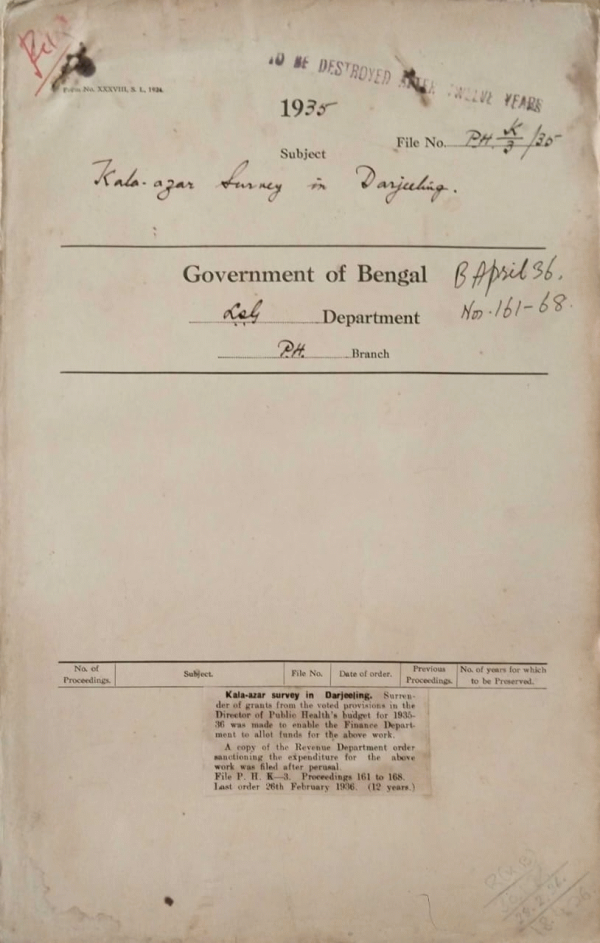 TO BE DESTROYED AFTER TWELVE YEARS
Form No. XXXVIII, S. L., 1934.
1935
File No. P.H. K/3 /35
Subject
Kala-azar Survey in Darjeeling.
Government of Bengal
B April 36.
Nos. 161-68.
LSG Department
P.H. Branch
No. of Proceedings. Subject. File No. Date of order. Previous Proceedings. No. of years for which to be Preserved.
Kala-azar survey in Darjeeling. Surren-
der of grants from the voted provisions in the
Director of Public Health's budget for 1935-
36 was made to enable the Finance Depart-
ment to allot funds for the above work.
A copy of the Revenue Department order
sanctioning the expenditure for the above
work was filed after perusal.
File P. H. K—3. Proceedings 161 to 168.
Last order 26th February 1936. (12 years.)